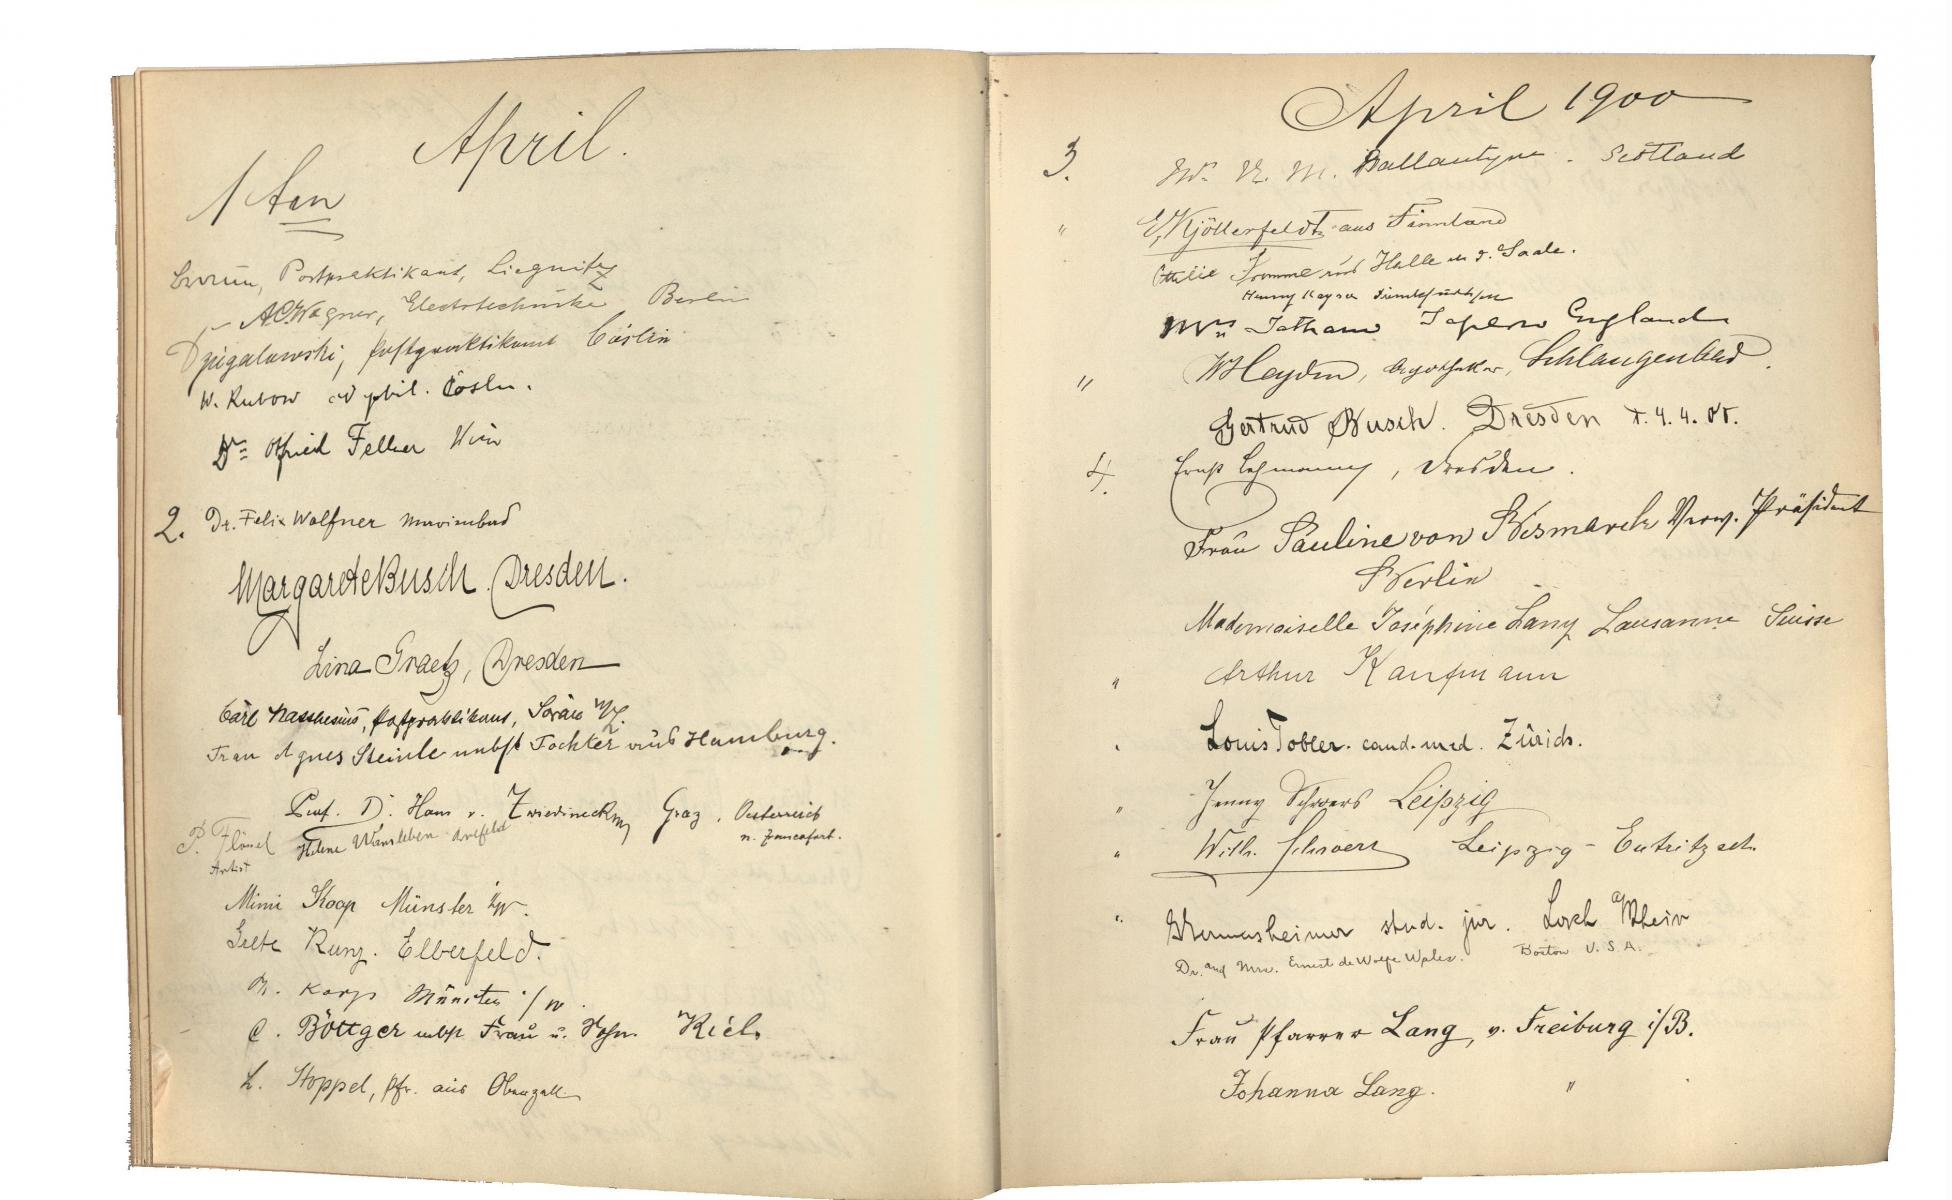 April.
1ten
Postpraktikant, Liegnitz
A.C. Wagner, Electrotechniker Berlin
Dzigalowski, Postpraktikant Cöslin
W. Rubow cd phil. Cöslin.
Dr. Otfried Fellner Wien
2. Dr. Felix Wolfner Marienbad
Margarete Busch. Dresden.
Lina Graetz, Dresden
Carl Postpraktikant, Sorau N/L.
Frau Agnes Steinle nebst Tochter aus Hamburg.
Prof. D. Hans v. Zwiedineck, Graz, Oesterreich
P. Helene Wansleben Krefeld n. Frau
Artist
Mimi Koop Münster i/W.
Grete Kunz. Elberfeld.
M. Korps Münster i/W.
C. Böttger nebst Frau u. Sohn. Kiel.
L. Stoppel, Pfr. aus Oberzell
April 1900
3. R. M. Ballantyne - Scotland
" E. Kjöllerfeldt aus Finnland
Ottilie Fromme aus Halle a. d. Saale.
Henny Kayser
Mrs Tatham England
" W Heyden, Apotheker, Schlangenbad.
Gertrud Busch. Dresden d. 4. 4. 00.
4. Ernst Lehmann, Dresden.
Frau Pauline von Bismarck Verw. Präsident
Berlin
Mademoiselle Joséphine Lany Lausanne Suisse
" Arthur Kaufmann
" Louis Tobler. cand. med. Zürich.
" Jenny Schroers Leipzig
" Wilh. Schroers Leipzig - Eutritzsch.
" stud. jur. Lorch a/Rhein
Dr. and Mrs. Ernest de Wolfe Wales. Boston U.S.A.
Frau Pfarrer Lang, v. Freiburg i/B.
Johanna Lang. "